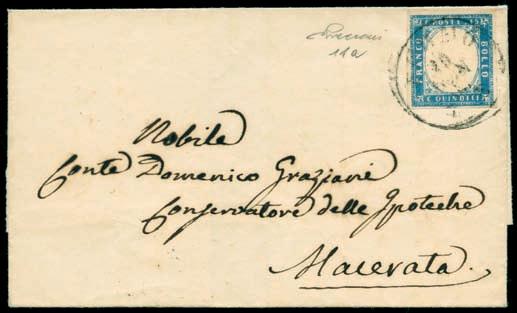 11a
C. POSTE 15
FRANCO
BOLLO
C. QUINDICI
Nobile
Conte Domenico Graziani
Conservatore delle Ipoteche
Macerata.